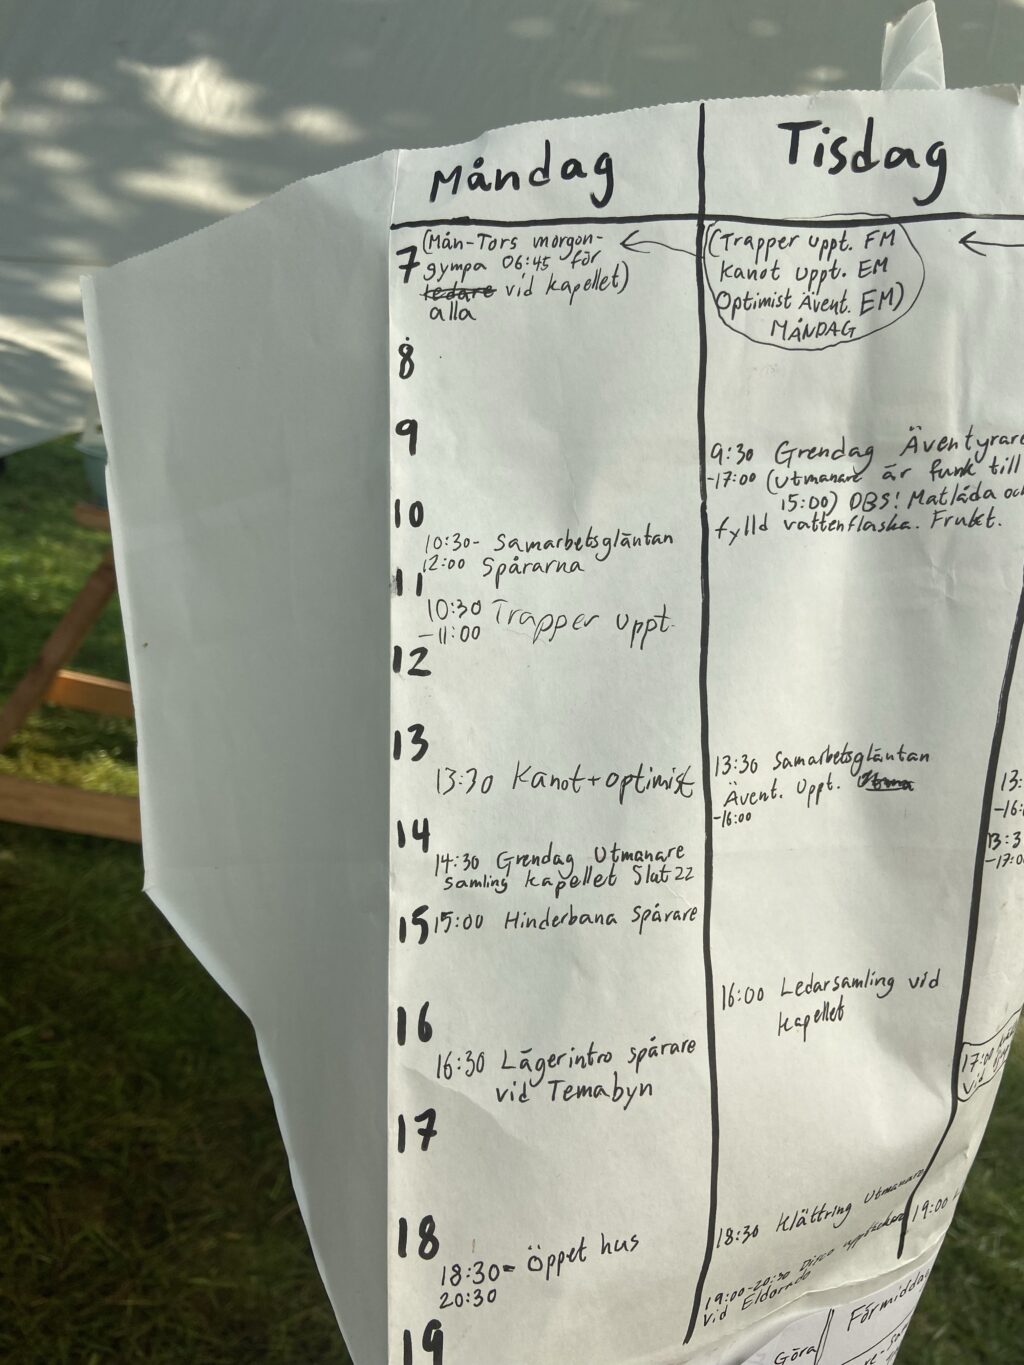 Måndag
7 (Mån-Tors morgon-
gympa 06:45 för
ledare vid kapellet)
alla
8
9
10
10:30- Samarbetsgläntan
12:00 Spårarna
11
10:30 Trapper uppt.
-11:00
12
13
13:30 Kanot+optimist
14
14:30 Grendag Utmanare
samling kapellet Slut 22
15 15:00 Hinderbana spårare
16
16:30 Lägerintro spårare
vid Temabyn
17
18
18:30- Öppet hus
20:30
19
Tisdag
(Trapper uppt. FM
Kanot uppt. EM
Optimist Ävent. EM)
MÅNDAG
9:30 Grendag Äventyrare
-17:00 (Utmanare är funk till
15:00) OBS! Matlåda och
fylld vattenflaska. Frukt.
13:30 Samarbetsgläntan
Ävent. Uppt.
-16:00
16:00 Ledarsamling vid
kapellet
18:30 Klättring Utmanare
19:00-20:30 Disco
vid Eldorado
13:
-16:
13:3
-17:00
17:00
vid
19:00
Förmiddag
Göra